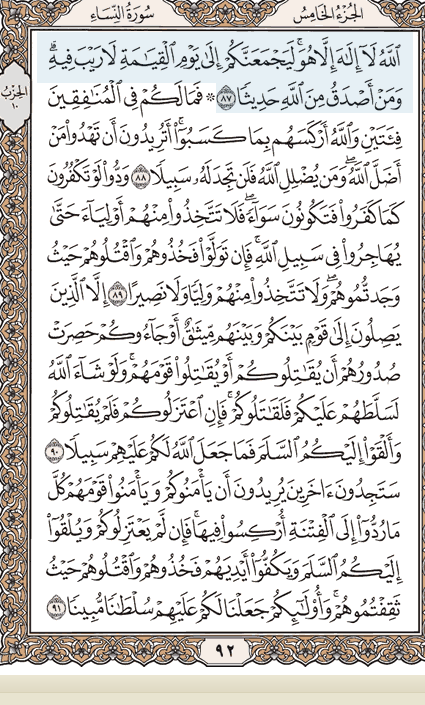 الجزء الخامس
سورة النساء
ٱللَّهُ لَآ إِلَٰهَ إِلَّا هُوَۚ لَيَجۡمَعَنَّكُمۡ إِلَىٰ يَوۡمِ ٱلۡقِيَٰمَةِ لَا رَيۡبَ فِيهِۗ
وَمَنۡ أَصۡدَقُ مِنَ ٱللَّهِ حَدِيثٗا ٨٧ ۞ فَمَا لَكُمۡ فِي ٱلۡمُنَٰفِقِينَ
فِئَتَيۡنِ وَٱللَّهُ أَرۡكَسَهُم بِمَا كَسَبُوٓاْۚ أَتُرِيدُونَ أَن تَهۡدُواْ مَنۡ
أَضَلَّ ٱللَّهُۖ وَمَن يُضۡلِلِ ٱللَّهُ فَلَن تَجِدَ لَهُۥ سَبِيلٗا ٨٨ وَدُّواْ لَوۡ تَكۡفُرُونَ
كَمَا كَفَرُواْ فَتَكُونُونَ سَوَآءٗۖ فَلَا تَتَّخِذُواْ مِنۡهُمۡ أَوۡلِيَآءَ حَتَّىٰ
يُهَاجِرُواْ فِي سَبِيلِ ٱللَّهِۚ فَإِن تَوَلَّوۡاْ فَخُذُوهُمۡ وَٱقۡتُلُوهُمۡ حَيۡثُ
وَجَدتُّمُوهُمۡۖ وَلَا تَتَّخِذُواْ مِنۡهُمۡ وَلِيّٗا وَلَا نَصِيرًا ٨٩ إِلَّا ٱلَّذِينَ
يَصِلُونَ إِلَىٰ قَوۡمِۭ بَيۡنَكُمۡ وَبَيۡنَهُم مِّيثَٰقٌ أَوۡ جَآءُوكُمۡ حَصِرَتۡ
صُدُورُهُمۡ أَن يُقَٰتِلُوكُمۡ أَوۡ يُقَٰتِلُواْ قَوۡمَهُمۡۚ وَلَوۡ شَآءَ ٱللَّهُ
لَسَلَّطَهُمۡ عَلَيۡكُمۡ فَلَقَٰتَلُوكُمۡۚ فَإِنِ ٱعۡتَزَلُوكُمۡ فَلَمۡ يُقَٰتِلُوكُمۡ
وَأَلۡقَوۡاْ إِلَيۡكُمُ ٱلسَّلَمَ فَمَا جَعَلَ ٱللَّهُ لَكُمۡ عَلَيۡهِمۡ سَبِيلٗا ٩٠
سَتَجِدُونَ ءَاخَرِينَ يُرِيدُونَ أَن يَأۡمَنُوكُمۡ وَيَأۡمَنُواْ قَوۡمَهُمۡ كُلَّ
مَا رُدُّوٓاْ إِلَى ٱلۡفِتۡنَةِ أُرۡكِسُواْ فِيهَاۚ فَإِن لَّمۡ يَعۡتَزِلُوكُمۡ وَيُلۡقُوٓاْ
إِلَيۡكُمُ ٱلسَّلَمَ وَيَكُفُّوٓاْ أَيۡدِيَهُمۡ فَخُذُوهُمۡ وَٱقۡتُلُوهُمۡ حَيۡثُ
ثَقِفۡتُمُوهُمۡۚ وَأُوْلَٰٓئِكُمۡ جَعَلۡنَا لَكُمۡ عَلَيۡهِمۡ سُلۡطَٰنٗا مُّبِينٗا ٩١
الحزب
١٠
٩٢